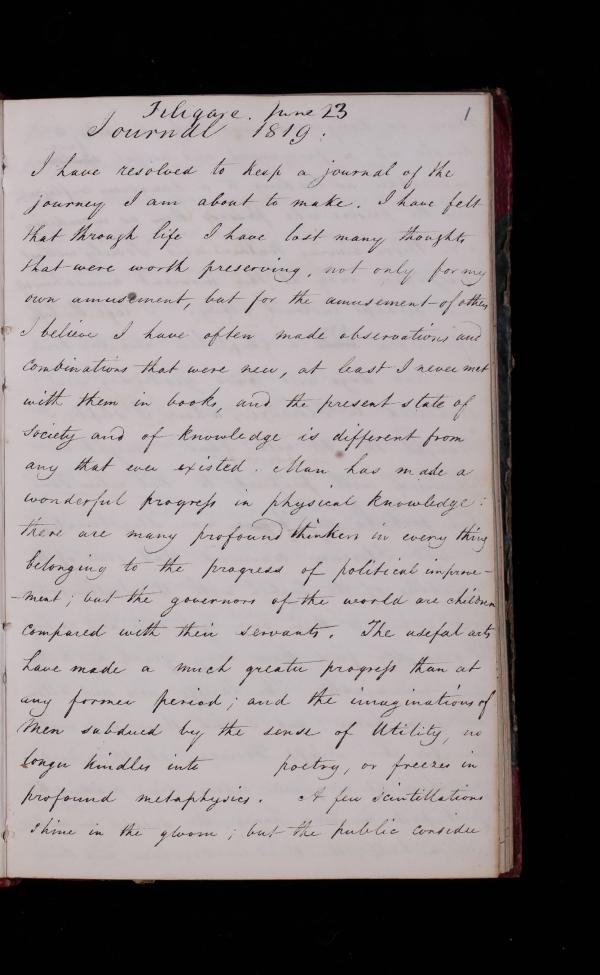 Filigare. June 23
1
Journal 1819:
I have resolved to keep a journal of the
journey I am about to make. I have felt
that through life I have lost many thoughts
that were worth preserving, not only for my
own amusement, but for the amusement of others
I believe I have often made observations and
combinations that were new, at least I never met
with them in books, and the present state of
society and of knowledge is different from
any that ever existed. Man has made a
wonderful progress in physical knowledge:
there are many profound thinkers in every thing
belonging to the progress of political improve-
-ment; but the governors of the world are children
compared with their servants. The useful arts
have made a much greater progress than at
any former period; and the imaginations of
Men subdued by the sense of Utility, no
longer kindles into poetry, or freezes in
profound metaphysics. A few scintillations
shine in the gloom; but the public consider